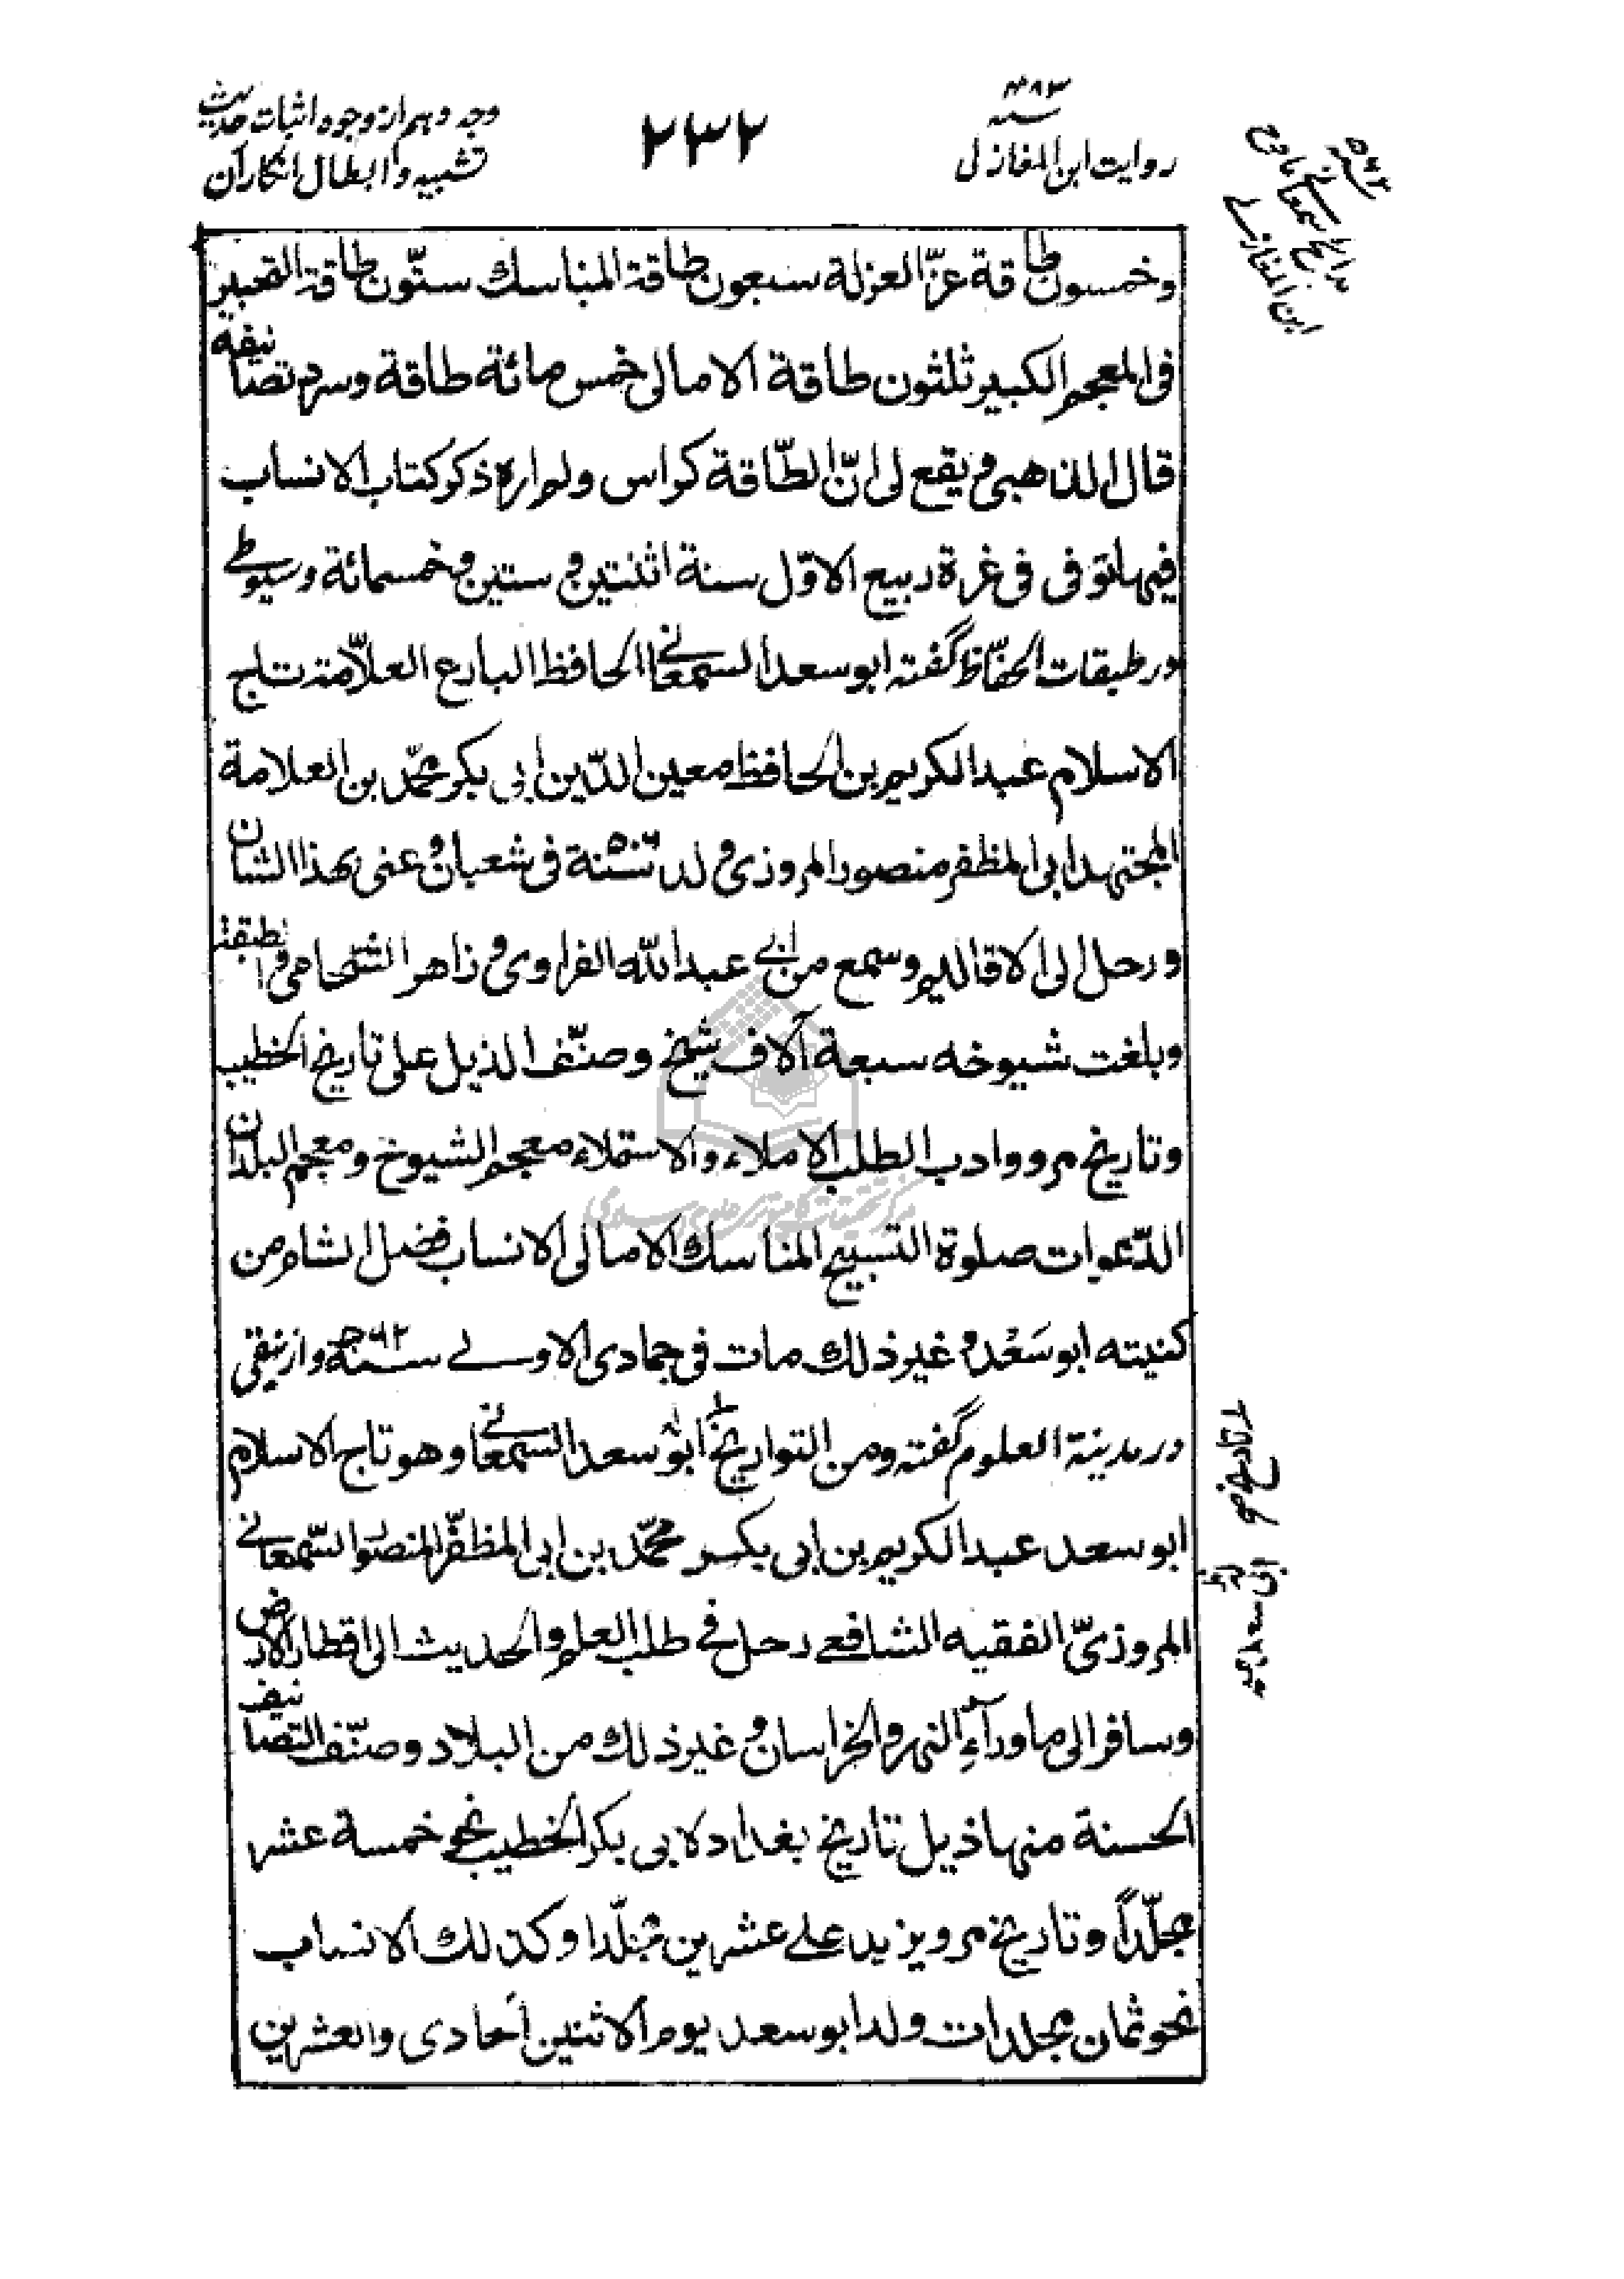 وجه دهم از وجوه اثبات حدیث
تشبیه و ابطال انکار آن
۲۳۲
سنه ۴۸۳
روایت ابن المغازلی
ابن المغازلی
وخمسون طاقة عزّ العزلة سبعون طاقة المناسك ستّون طاقة التحبير
فى المعجم الكبير ثلثون طاقة الامالى خمس مائة طاقة وسرد تصانيفه
قال الذهبى و يقع لى انّ الطّاقة كراس ولم اره ذكر كتاب الانساب
فيها توفى فى غرة ربيع الاوّل سنة اثنتين و ستين و خمسمائة وسیوطے
در طبقات الحفّاظ گفته ابو سعد السمعانے الحافظ البارع العلاّمة تاج
الاسلام عبد الكريم بن الحافظ معين الدّين ابى بكر محمّد بن العلامة
المجتهد ابى المظفر منصور المروزى ولد سنة ۵۰۶ فى شعبان و عنى بهذا الشان
ورحل الى الاقاليم وسمع من ابى عبد الله الفراوى و زاهر الشحامى و طبقتهما
وبلغت شيوخه سبعة آلاف شيخ وصنّف الذيل على تاريخ الخطيب
وتاريخ مرو وادب الطلب الاملاء والاستملاء معجم الشيوخ ومعجم البلدان
الدّعوات صلوة التسبيح المناسك الامالى الانساب فضل الشام من
كنيته ابو سَعْد و غير ذلك مات فى جمادى الاولے سنة ۵۶۲ و ازنیقی
در مدینة العلوم گفته ومن التواريخ تاريخ ابو سعد السمعانے وهو تاج الاسلام
ابو سعد عبد الكريم بن ابى بكر محمّد بن ابى المظفّر المنصور السّمعانے
المروزىّ الفقيه الشافعے رحل فے طلب العلم والحديث الى اقطار الارض
وسافر الى ماورآء النهر والخراسان و غير ذلك من البلاد وصنّف التصانيف
الحسنة منها ذيل تاريخ بغداد لابى بكر الخطيب نحو خمسة عشر
مجلّداً وتاريخ مرو يزيد على عشرين مجلّدا وكذلك الانساب
نحو ثمان مجلدات ولد ابو سعد يوم الاثنين الحادى والعشرين